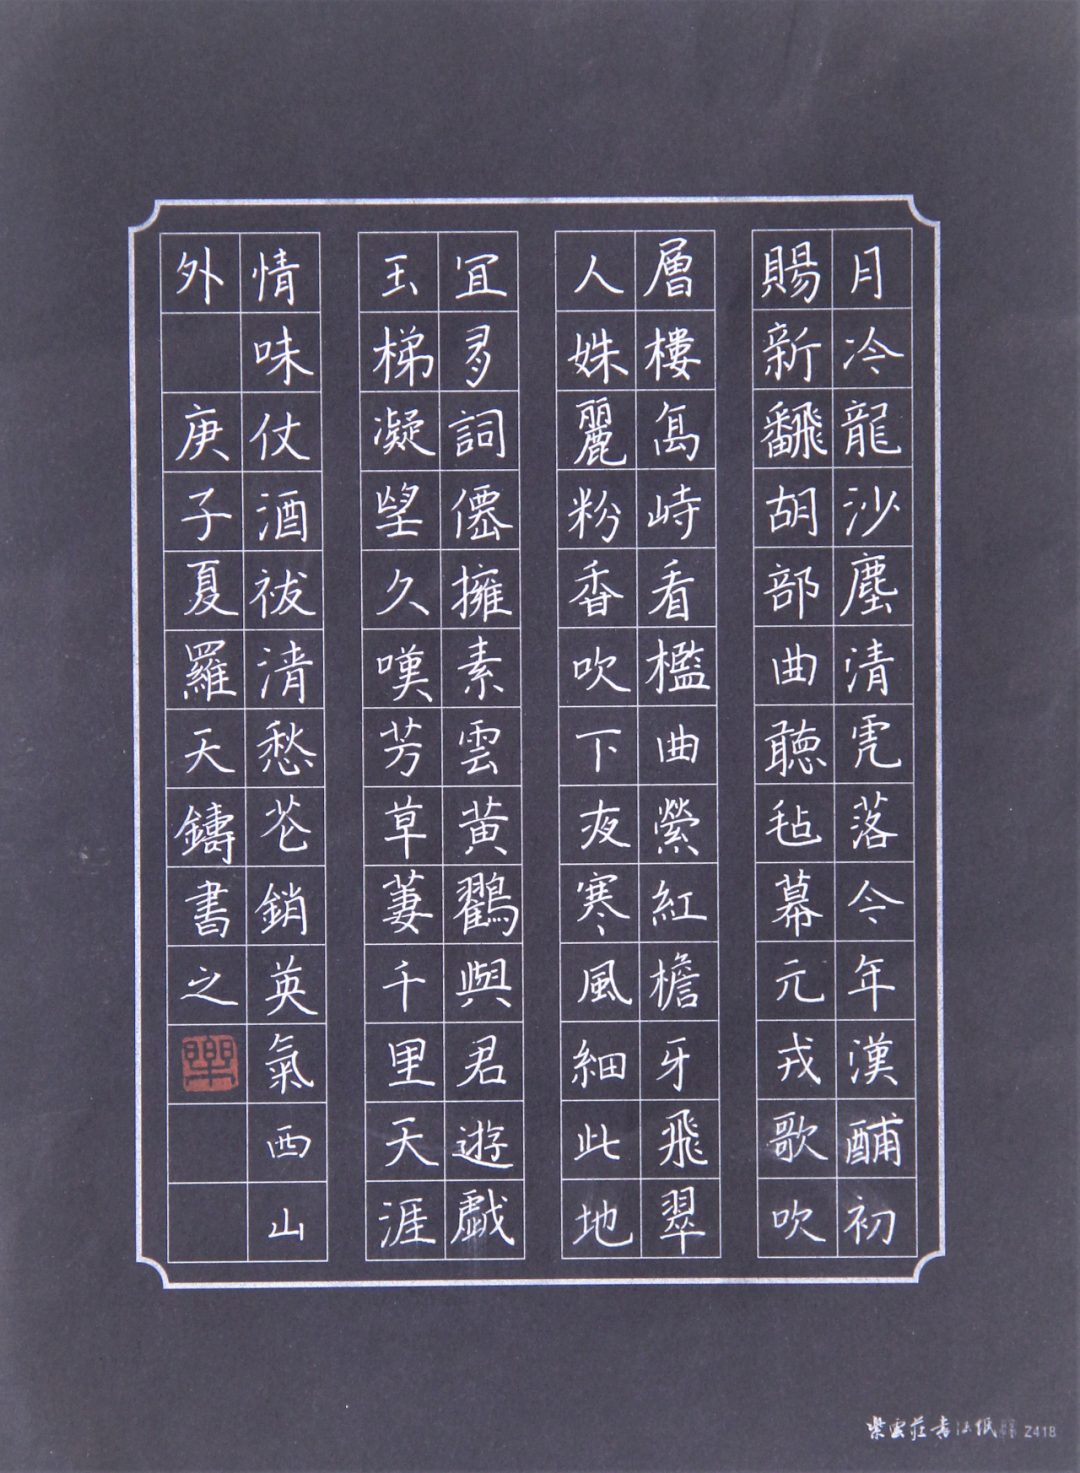 月冷龍沙塵清虎落今年漢酺初
賜新飜胡部曲聽毡幕元戎歌吹
層樓高峙看檻曲縈紅檐牙飛翠
人姝麗粉香吹下夜寒風細此地
宜有詞僊擁素雲黃鶴與君遊戲
玉梯凝望久嘆芳草萋千里天涯
情味仗酒祓清愁花銷英氣西山
外 庚子夏羅天鑄書之
紫雲莊書法紙 Z418